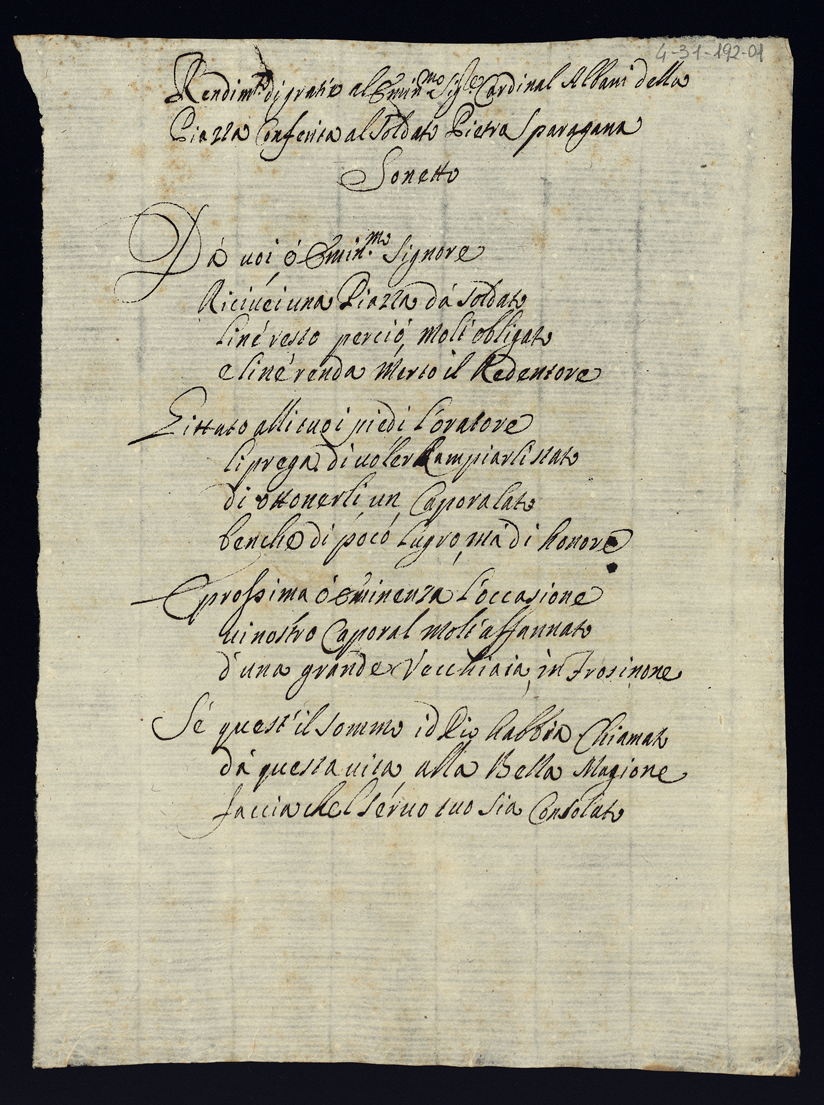 4-31-192-01
Rendim.to di gratie al Emin.mo Sig.re Cardinal Albani della
Piazza Conferita al Soldato Pietro Sparagana
Sonetto
Dà voi ó Emin.mo Signore
Riciuei una Piazza dà Soldato
Li né resto perció, molt'obligato
e li né renda Merto il Redentore
Gittato alli tuoi piedi l'oratore
li prega, di uoller Campiarli stato
di ottenerli un Caporalato
benche di pocó lugro, ma di honore
E prossima ó Eminenza l'occasione
ui nostro Caporal molt'affannato
d'una grande Vecchiaia, in Frosinone
Sé quest'il sommo id Dio habbia Chiamato
dà questa uita alla Bella Magione
faccia che l'séruo tuo sia Consolato